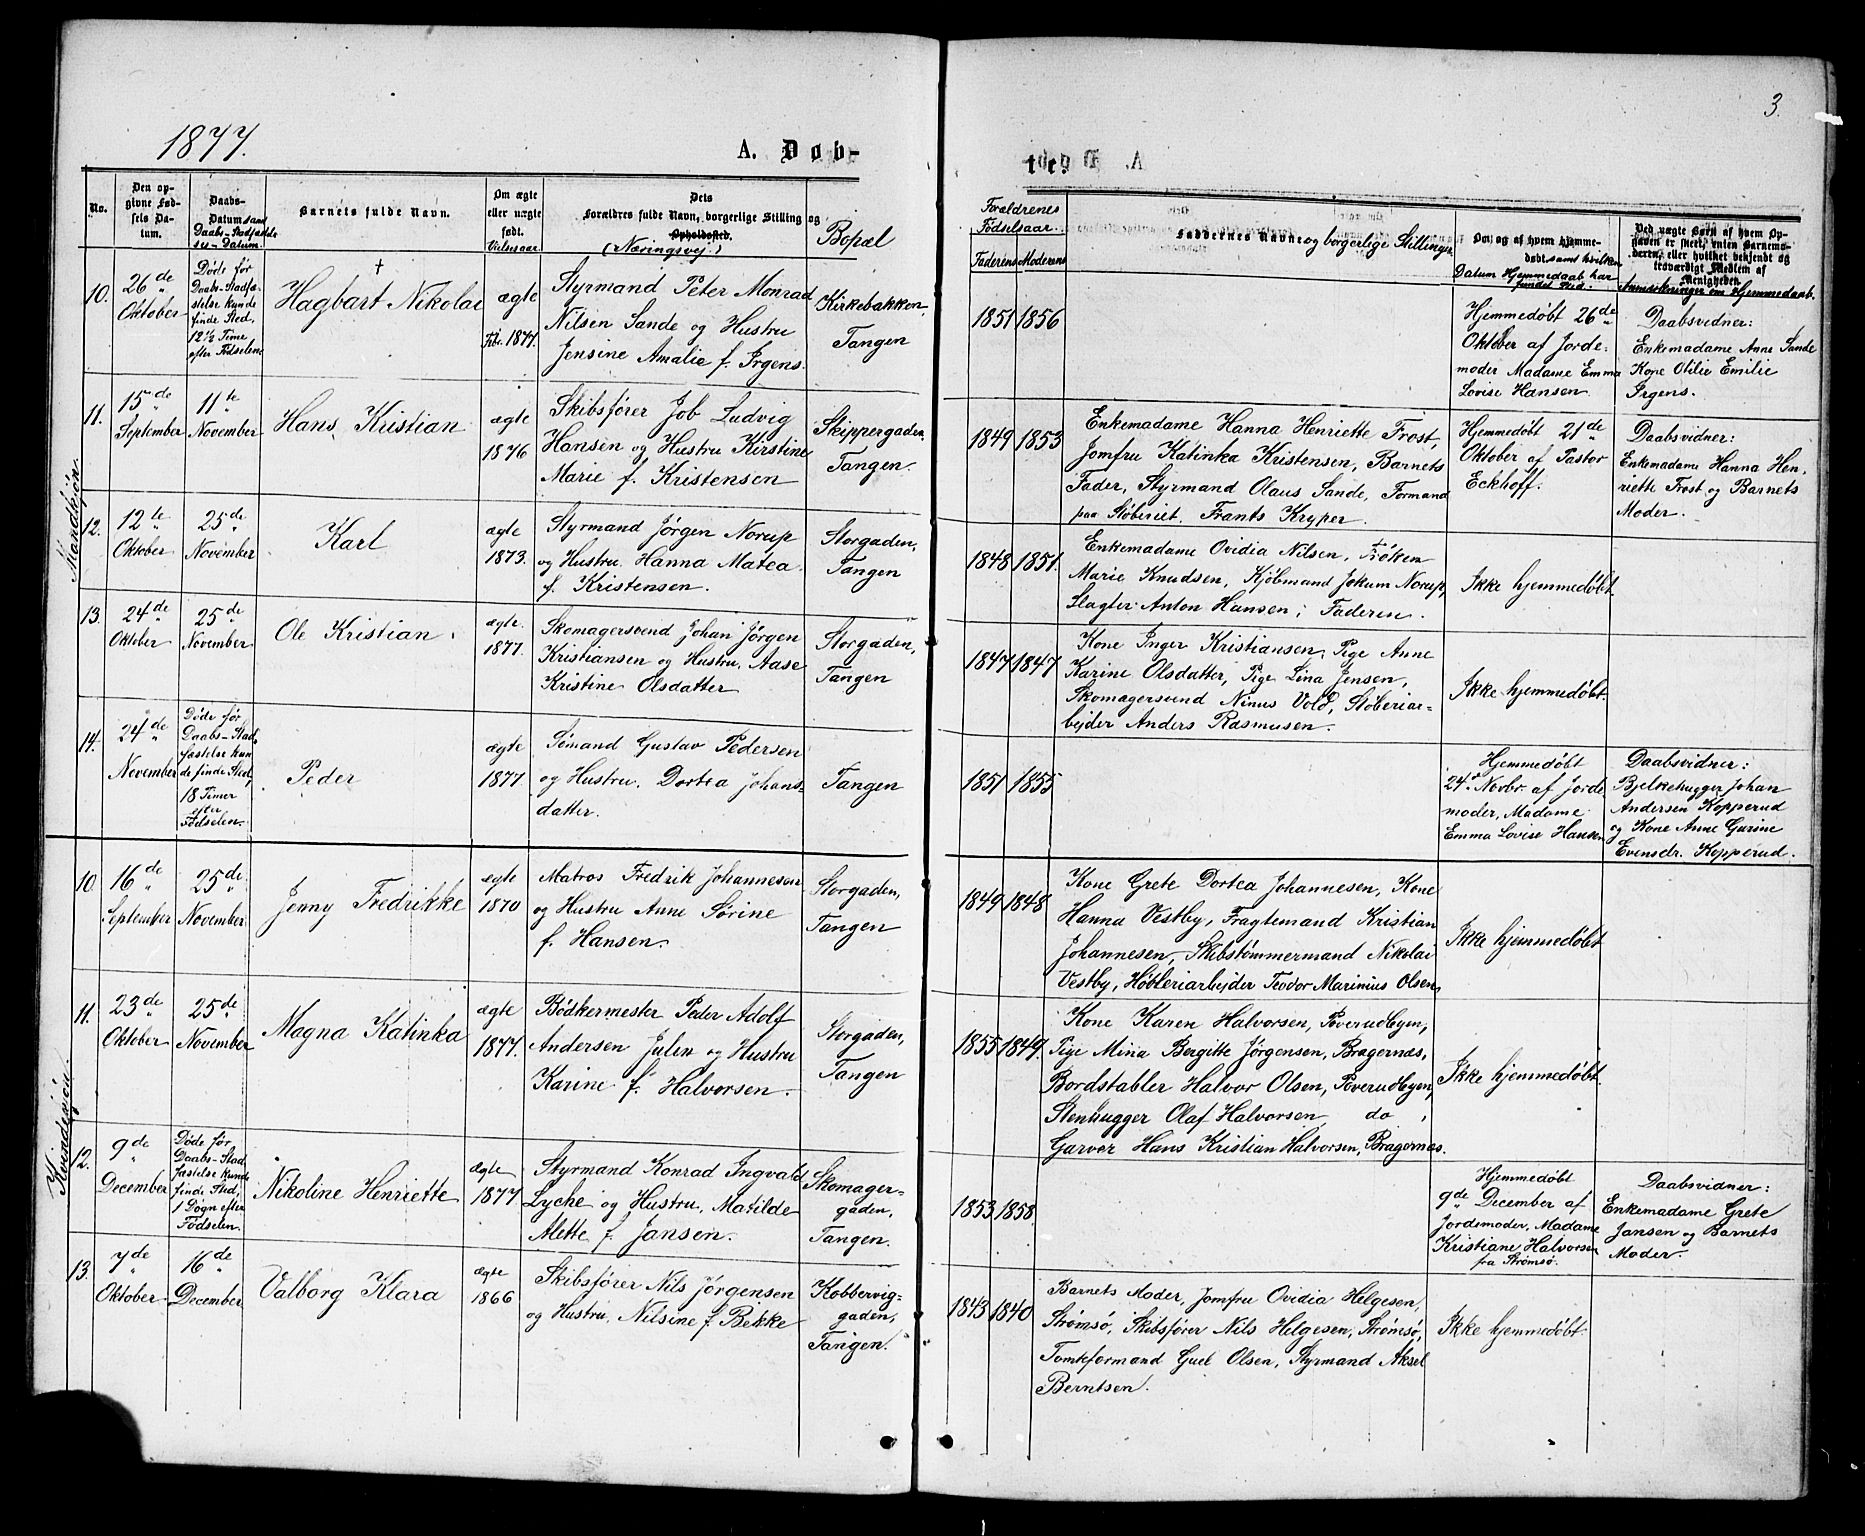 1877.
A. Døb-
te.
3.
No.
Den op-
givne Fød-
sels Da-
tum.
Daabs-
Datum samt
Daabs-Stadfæstel-
ses-Datum.
Barnets fulde Navn.
Om ægte
eller uægte
født.
Vielsesaar
Dets
Forældres fulde Navn, borgerlige Stilling og
Opholdssted.
(Næringsvej)
Bopæl
Forældrenes
Fødselsaar.
Faderens Moderens
Faddernes Navne og borgerlige Stillinger
Om og af hvem hjemme-
døbt. samt hvilken
Datum Hjemmedaab har
fundet Sted.
Ved uægte Børn af hvem Op-
gaven er skeet, enten Barnemo-
deren, eller hvilket bekjendt og
troværdigt Medlem af
Menigheden.
Anmærkninger om Hjemmedaab.
Mandkjøn.
10.
26 de
Oktober
Døde før
Daabs-Stadfæ-
stelse kunde
finde Sted,
12 1/2 Time
efter Fødselen
†
Hagbart Nikolai
ægte
1877.
Styrmand Peter Monrad
Nilsen Sande og Hustru
Jensine Amalie f. Irgens.
Kirkebakken.
Tangen
1851 1856
Hjemmedøbt 26 de
Oktober af Jorde-
moder Madame Emma
Lovise Hansen
Daabsvidner:
Enkemadame Anne Sande
Kone Otilie Emilie
Irgens.
11.
15 de
September
11 te
November
Hans Kristian
ægte
1876
Skibsfører Job Ludvig
Hansen og Hustru Kirstine
Marie f. Kristensen
Skippergaden
Tangen.
1849 1853
Enkemadame Hanna Henriette Frost,
Jomfru Katinka Kristensen, Barnets
Fader, Styrmand Olaus Sande, Formand
paa Støberiet Frants Kryper.
Hjemmedøbt 21 de
Oktober af Pastor
Eckhoff.
Daabsvidner:
Enkemadame Hanna Hen-
riette Frost og Barnets
Moder.
12.
12 te
Oktober
25 de
November
Karl
ægte
1873.
Styrmand Jørgen Norup
og Hustru Hanna Matea
f. Kristensen.
Storgaden,
Tangen
1848 1851.
Enkemadame Ovidia Nilsen, Frøken
Marie Knudsen, Kjøbmand Jokum Norup,
Slagter Anton Hansen; Faderen.
Ikke hjemmedøbt
13.
24 de
Oktober
25 de
November
Ole Kristian
ægte.
1877.
Skomagersvend Johan Jørgen
Kristiansen og Hustru, Aase
Kristine Olsdatter
Storgaden,
Tangen
1847 1847
Kone Inger Kristiansen, Pige Anne
Karine Olsdatter, Pige Lina Jensen,
Skomagersvend Ninus Vold, Støberiar-
bejder Anders Rasmusen.
Ikke hjemmedøbt
14.
24 de
November
Døde før
Daabs-Stad-
fæstelse kun-
de finde Sted,
18 Timer
efter
Fødselen.
Peder
ægte
1877
Sømand Gustav Pedersen
og Hustru. Dortea Johans-
datter.
Tangen
1851 1855
Hjemmedøbt
24 d Novbr. af Jorde
moder, Madame
Emma Lovise Hansen
Daabsvidner:
Bjelkehugger Johan
Andersen Kopperud
og Kone Anne Gurine
Evensdr. Kopperud.
Kvindekjøn.
10.
16 de
September
25 de
November
Jenny Fredrikke
ægte
1870
Matros Fredrik Johannesen
og Hustru Anne Sørine
f. Hansen.
Storgaden,
Tangen
1849 1848
Kone Grete Dortea Johannesen, Kone
Hanna Vestby, Fragtemand Kristian
Johannesen, Skibstømmermand Nikolai
Vestby, Høvleriarbejder Teodor Marinius Olsen,
Ikke hjemmedøbt
11.
23 de
Oktober
25 de
November
Magna Katinka
ægte
1877.
Bødkermester Peder Adolf
Andersen Julin og Hustru
Karine f. Halvorsen.
Storgaden,
Tangen
1855 1849.
Kone Karen Halvorsen, Poverudbyen,
Pige Mina Bergitte Jørgensen, Bragernæs,
Bordstabler Halvor Olsen, Poverudbyen,
Stenhugger Olaf Halvorsen do,
Garver Hans Kristian Halvorsen, Bragernæs.
Ikke hjemmedøbt
12.
9 de
December
Døde før
Daabs-Stad
fæstelse kunde
finde Sted,
1 Døgn efter
Fødselen.
Nikoline Henriette
ægte
1877
Styrmand Konrad Ingvald
Lyche og Hustru, Matilde
Alette f. Jansen.
Skomager-
gaden,
Tangen.
1853 1858.
Hjemmedøbt
9 de December af
Jordemoder, Madame
Kristiane Halvorsen
fra Strømsø.
Daabsvidner:
Enkemadame Grete
Jansen og Barnets
Moder.
13.
7 de
Oktober
16 de
December
Valborg Klara
ægte
1866
Skibsfører Nils Jørgensen
og Hustru, Nilsine f. Bekke
Kobbervig-
gaden,
Tangen.
1843 1840
Barnets Moder, Jomfru Ovidia Helgesen,
Strømsø, Skibsfører Nils Helgesen, Strømsø,
Tomteformand Olsen, Styrmand Aksel
Berntsen.
Ikke hjemmedøbt